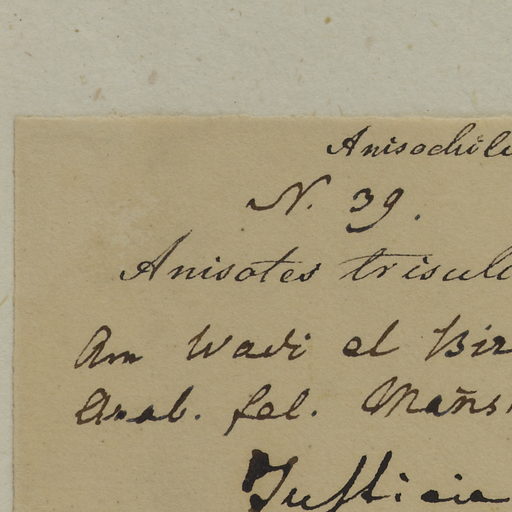 Anisochil
N. 39.
Anisotes trisul
Am Wadi el Bir
Arab. fel.
Justicia